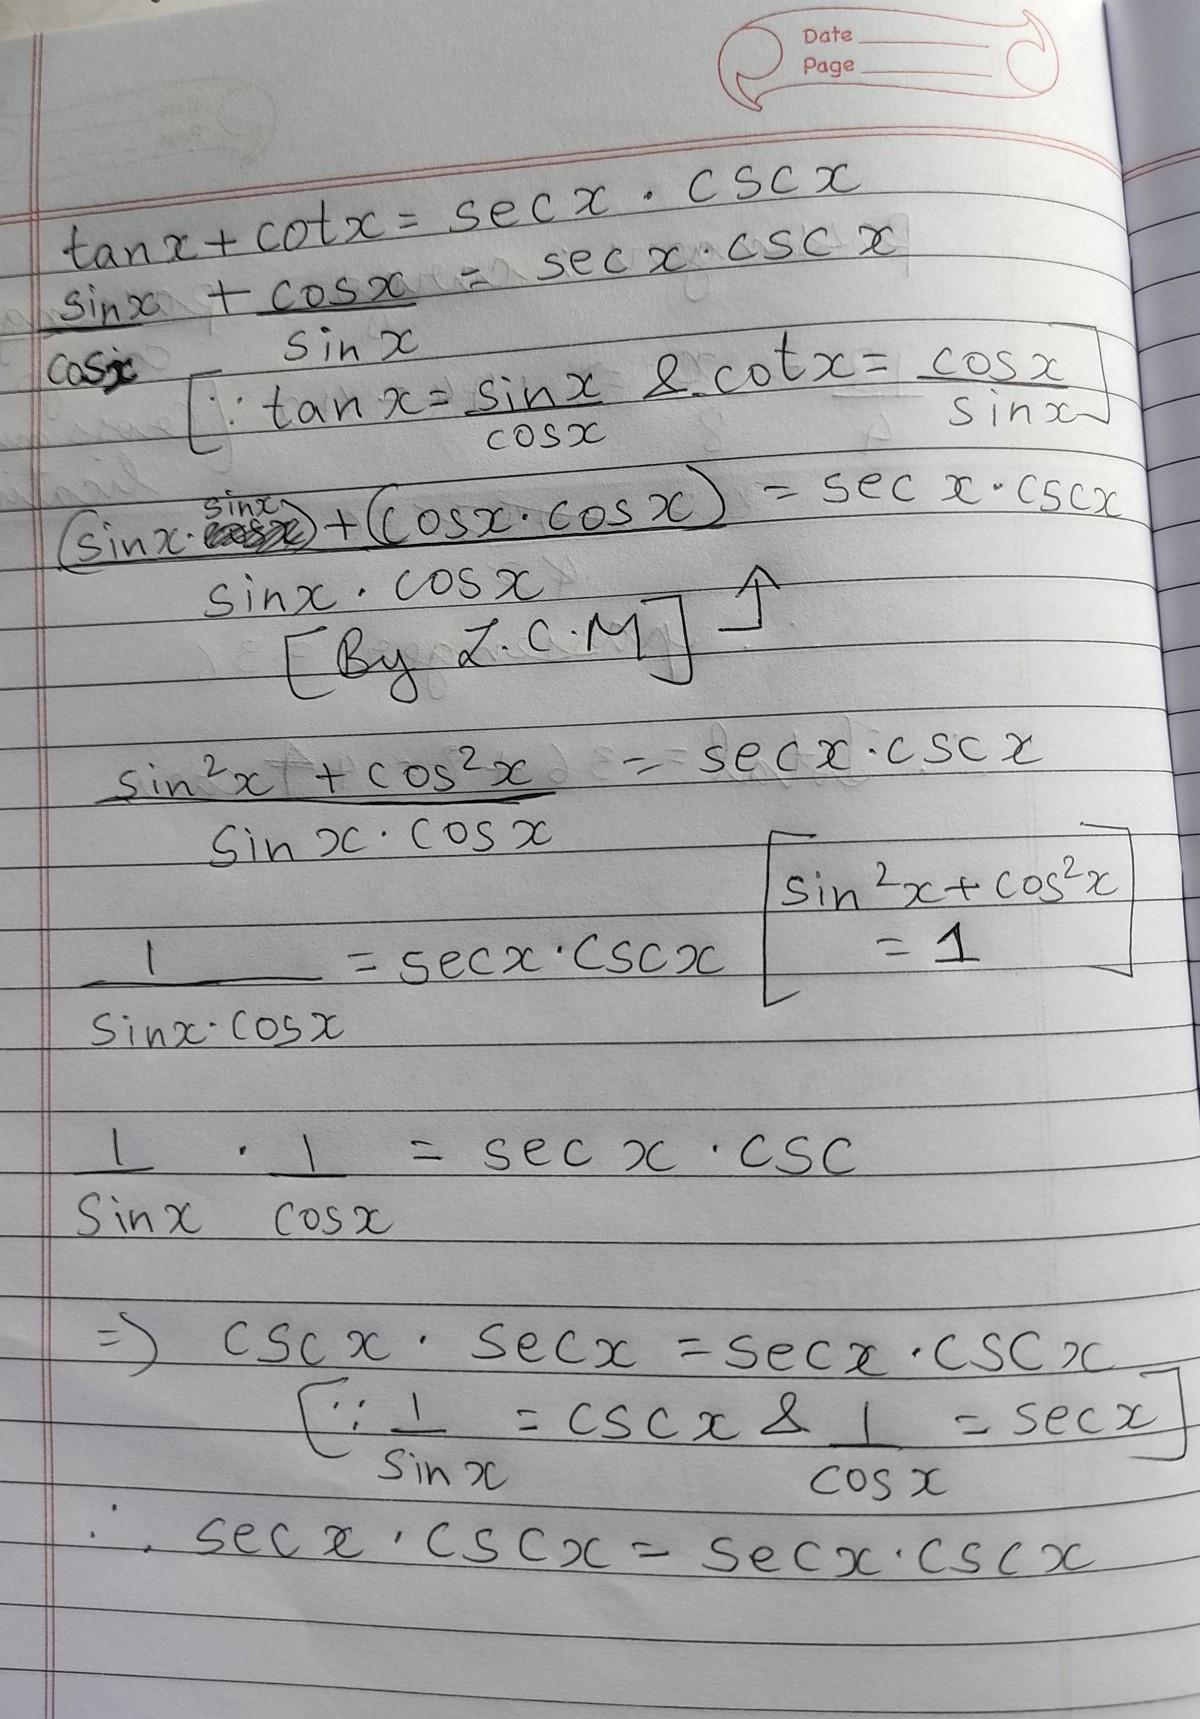 Date
Page
tanx + cotx = secx · cscx
sinx/cosx + cosx/sinx = secx · cscx
[∵ tanx = sinx/cosx & cotx = cosx/sinx]
(sinx · sinx) + (cosx · cosx)/sinx · cosx = secx · cscx
[By L.C.M] ↑
sin²x + cos²x/sinx · cosx = secx · cscx
1/sinx · cosx = secx · cscx [sin²x + cos²x = 1]
1/sinx · 1/cosx = secx · csc
=> cscx · secx = secx · cscx
[∵ 1/sinx = cscx & 1/cosx = secx]
∴ secx · cscx = secx · cscx